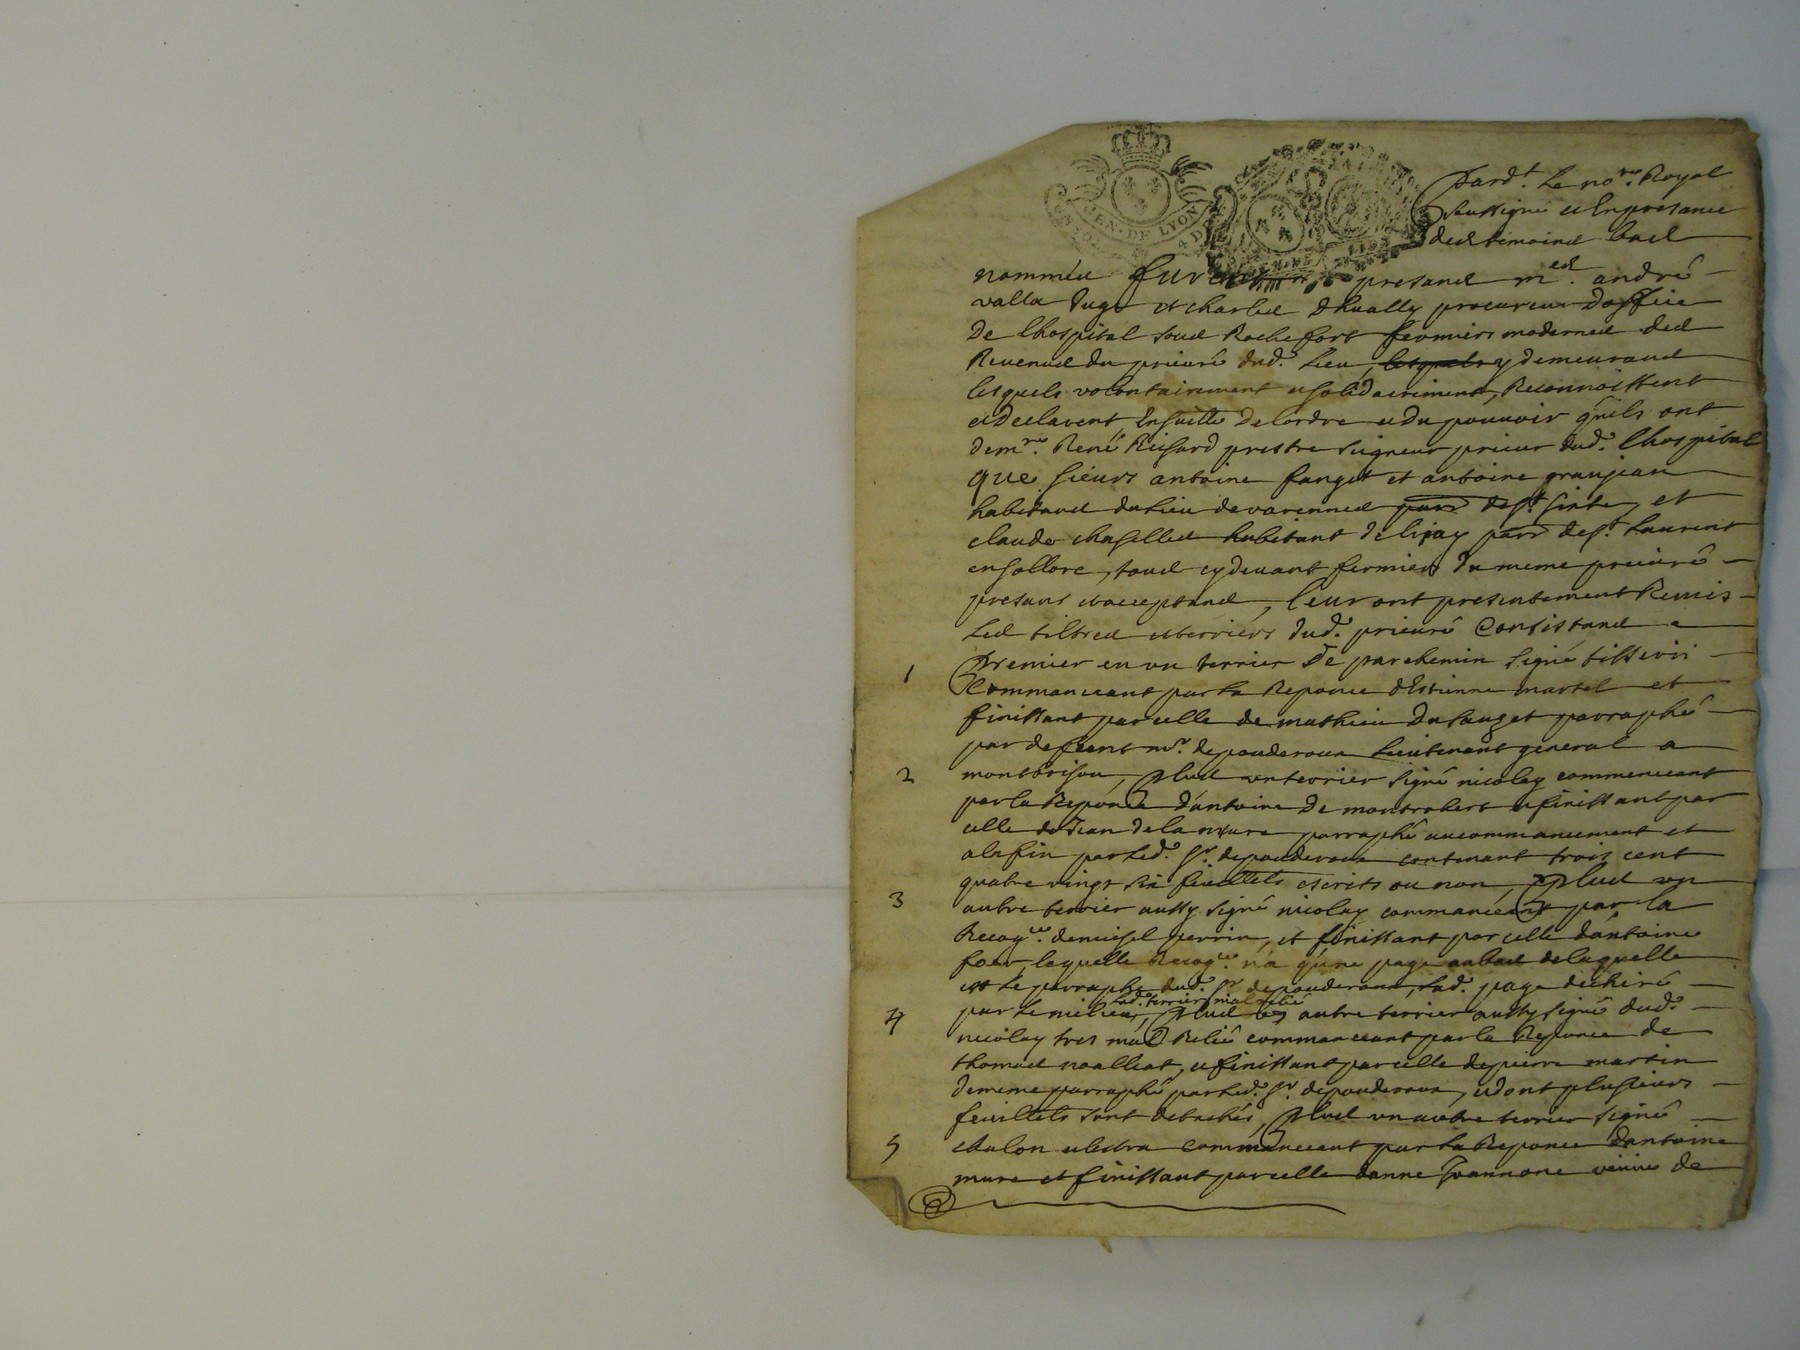 GEN. DE LYON
Pard.t le no.re Royal
soussigné et en presance
des temoins bas
nommés furent presans m.es andré
valla juge et charles dhually procureur doffice
De lhospital sous Rochefort fermiers modernes des
Revenus du prieuré dud. lieu, lesquels y demeurans
lesquels volontairement et solidairement, Reconnoissent
et declarent, Ensuitte de lordre et du pouvoir qu'ils ont
de m.re René Richard prestre seigneur prieur dud. lhospital
que sieurs antoine fanget et antoine granjean
habitans du lieu de varennes parr de s.t sixte, et
claude chasselles habitant de parr de s.t laurent
en sollore, tous cydevant fermiers du meme prieuré
presans et acceptans, leur ont presentement Remis
les tiltres et terriers dud. prieuré Consistans
1 Premier en un terrier de parchemin signé
Commanceant par la Reponce d'Estienne martel et
finissant par celle de mathieu Du sauzet parraphé
par deffunt m.r depouderoux lieutenant general a
2 montbrison, Plus un terrier signé nicolay commenceant
par la Reponce d'antoine De montrobert et finissant par
celle de Jean De la mure parraphé au commancement et
a la fin par led. s.r depouderoux contenant trois cent
quatre vingt six feuillets escrits ou non, Plus un
3 autre terrier aussy signé nicolay commanceant par la
Recog.ce de michel perrin, et finissant par celle d'antoine
foer, lequelle Recog.ce n'a q'une page au bas de laquelle
est le parraphe dud. s.r depouderoux, lad. page dechiré
led. terrier mal relié
4 par le milieu, Plus un autre terrier aussy signé dud.
nicolay tres mal Relié commanceant par la Reponce de
thomas noalleat, et finissant par celle de pierre martin
de meme parraphé par led. s.r depouderoux, et dont plusieurs
feuillets sont detachés, Plus un autre terrier signé
5 chalon et commanceant par la Reponce d'antoine
mure et finissant par celle danne veuve de